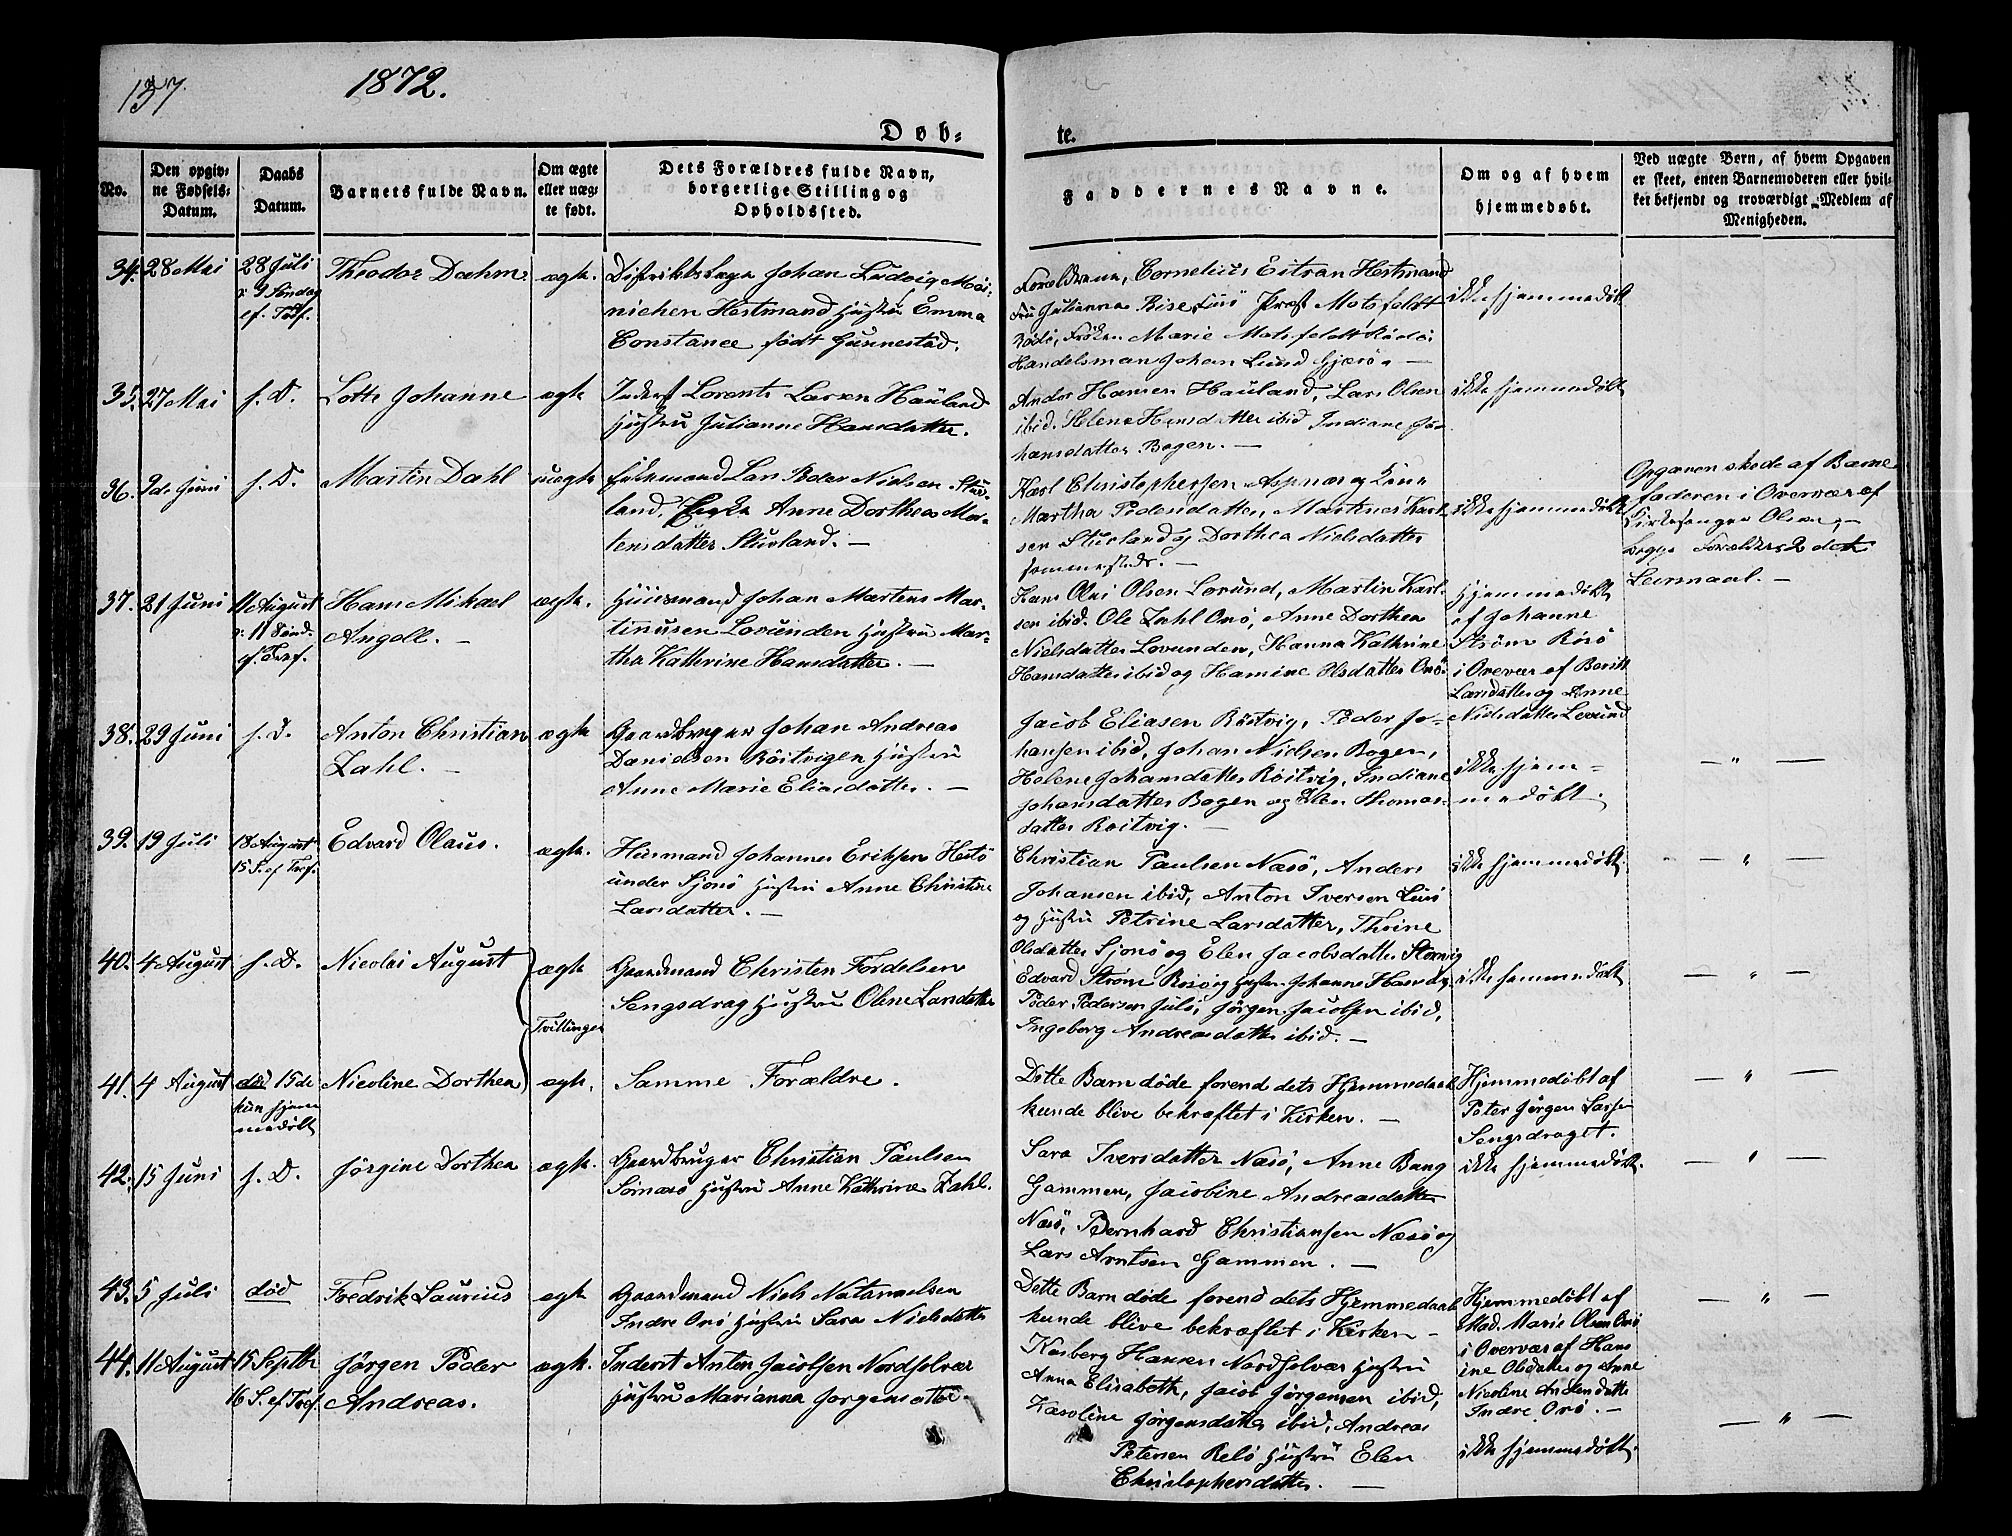 137.
1872.
Døb-
te.
No.
Den opgiv-
ne Fødsels-
Datum.
Daabs
Datum.
Barnets fulde Navn.
Om ægte
eller uæg-
te født.
Dets Forældres fulde Navn,
borgerlige Stilling og
Opholdssted.
Faddernes Navne.
Om og af hvem
hjemmedøbt.
Ved uægte Børn, af hvem Opgaven
er skeet, enten Barnemoderen eller hvil-
ket bekjendt og troværdigt Medlem af
Menigheden.
34. 28 Mai
28 Juli
9 Søndag
ef. Tref.
Theodor Dahm
ægte.
Distriktslæge Johan Ludvig Moi-
nichen Hestmand Hustru Emma
Constance født Gunnestad.
Forældrene, Cornelius Eitran Hestmand
Fru Julianna Bise Luø Præst Motsfeldt
Rødø, Frøken Marie Motsfeldt Rødø,
Handelsman Johan Lund Gjerø. —
ikke hjemmedøbt
35. 27 Mai
s. D.
Lotte Johanne
ægte
Inderst Lorents Larsen Hauland
Hustru Julianne Hansdatter.
Anders Hansen Hauland, Lars Olsen
ibid. Helene Hansdatter ibid Indiane Jo-
hansdatter Bogen. —
ikke hjemmedøbt
36. 2de Juni
s. D.
Martin Dahl
uægte
Enkemand Lars Peder Nielsen Stuv-
land. Enke Anne Dorthea Mor-
tensdatter Stuvland. —
Karl Christophersen Aspnæs og Kone
Martha Pedersdatter, Martines Karl-
sen Stuvland og Dorthea Nielsdatter
sammesteds. —
ikke hjemmedøbt
Opgaven skede af Barne
faderen i Overvær af
Kirkesanger Olsen —
begge Forældres 2 det
Leiermaal. —
37. 21 Juni
11 August
11 Sønd.
ef. Tref.
Hans Mikael
Angell. —
ægte.
Huusmand Johan Mortens Mar-
tinusen Lovunden Hustru Mar-
tha Kathrine Hansdatter. —
Hans Olai Olsen Lovund, Martin Karl-
sen ibid. Ole Zahl Onø, Anne Dorthea
Nielsdatter Lovunden, Hanna Kathrine
Hansdatter ibid og Hamine Olsdatter Onø
Hjemmedøbt
af Johanne
Strøm Rosø
i Overvær af Beritt
Larsdatter og Anne
Nielsdatter Lovund
38. 29 Juni
s. D.
Anton Christian
Zahl. —
ægte
Gaardbruger Johan Andreas
Danielsen Røitvigen Hustru
Anne Marie Eliasdatter. —
Jacob Eliasen Røitvig, Peder Jo-
hansen ibid, Johan Nielsen Bogen,
Helene Johansdatter Røitvig, Indiane
Johansdatter Bogen og Elen Thomas-
datter Røitvig. —
ikke hjem-
medøbt.
— " —
39. 19 Juli
18 August
15 S ef Tref.
Edvard Olaus.
ægte.
Husmand Johannes Eriksen Hestø
under Sjonø Hustru Anne Christine
Larsdatter. —
Christian Paulsen Næsø, Anders
Johansen ibid, Anton Iversen Luø
og Hustru Petrine Larsdatter, Thrine
Olsdatter Sjonø og Elen Jacobsdatter Storvig
ikke hjemmedøbt.
— " —
40. 4 August
s. D.
Nicolai August
ægte
Tvillinger
Gaardmand Christen Fordelsen
Sengsdrag Hustru Olene Larsdatter
Edvard Strøm Rosø og Hustru Johanne Hansd.
Peder Pedersen Juló, Jørgen Jacobsen ibid,
Ingeborg Andreasdatter ibid. —
ikke hjemmedøbt
— " —
41. 4 August
død 15de
kun hjem-
medøbt
Nicoline Dorthea
ægte.
Samme Forældre.
Dette Barn døde forend dets Hjemmedaab
kunde blive bekræftet i Kirken. —
Hjemmedøbt af
Peter Jørgen Larsen
Sengsdraget.
— " —
42. 15 Juni
s. D.
Jørgine Dorthea
ægte.
Gaardbruger Christian Paulsen
Sørnæsø Hustru Anne Kathrine Zahl.
Sara Iversdatter Næsø, Anne Bang
Gammen, Jacobine Andreasdatter
Næsø, Bernhard Christiansen Næsø og
Lars Arntsen Gammen. —
ikke hjemmedøbt.
— " —
43. 5 Juli
død
Fredrik Laurius
ægte
Gaardmand Niels Natanaelsen
Indre Onø Hustru Sara Nielsdatter
Dette Barn døde forend dets Hjemmedaab
kunde blive bekræftet i Kirken —
Hjemmedøbt af
Mad. Marie Olsen Onø
i Overvær af Hans
ine Olsdatter og Anne
Nicoline Andersdatter
Indre Onø. —
— " —
44. 11 August
15 Septbr
16 S. ef Tref.
Jørgen Peder
Andreas.
ægte.
Inderst Anton Jacobsen Nordsolvær
Hustru Marianna Jørgensdatter
Kasberg Hansen Nordsolvær Hustru
Anna Elisabeth, Jacob Jørgensen ibid,
Karoline Jørgensdatter ibid, Andreas
Petersen Relø Hustru Elen
Christophersdatter. —
ikke hjemmedøbt.
— " —